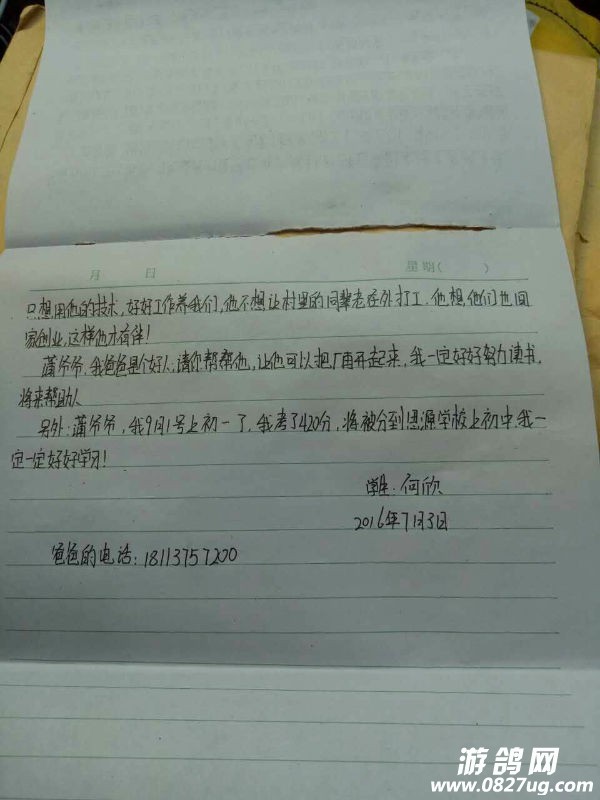 月 日 星期( )
只想用他的技术,好好工作养我们,他不想让村里的同辈老在外打工,他想,他们也回
家创业,这样他才有伴!
萧爷爷,我爸爸是个好人,请你帮帮他,让他可以把厂再开起来,我一定好好努力读书,
将来帮助人
另外:萧爷爷,我9月1号上初一了,我考了420分,将被分到思源学校上初中,我一
定一定好好学习!
学生:何欣
2016年7月3日
爸爸的电话:18113757200
游鸽网
www.0827ug.com